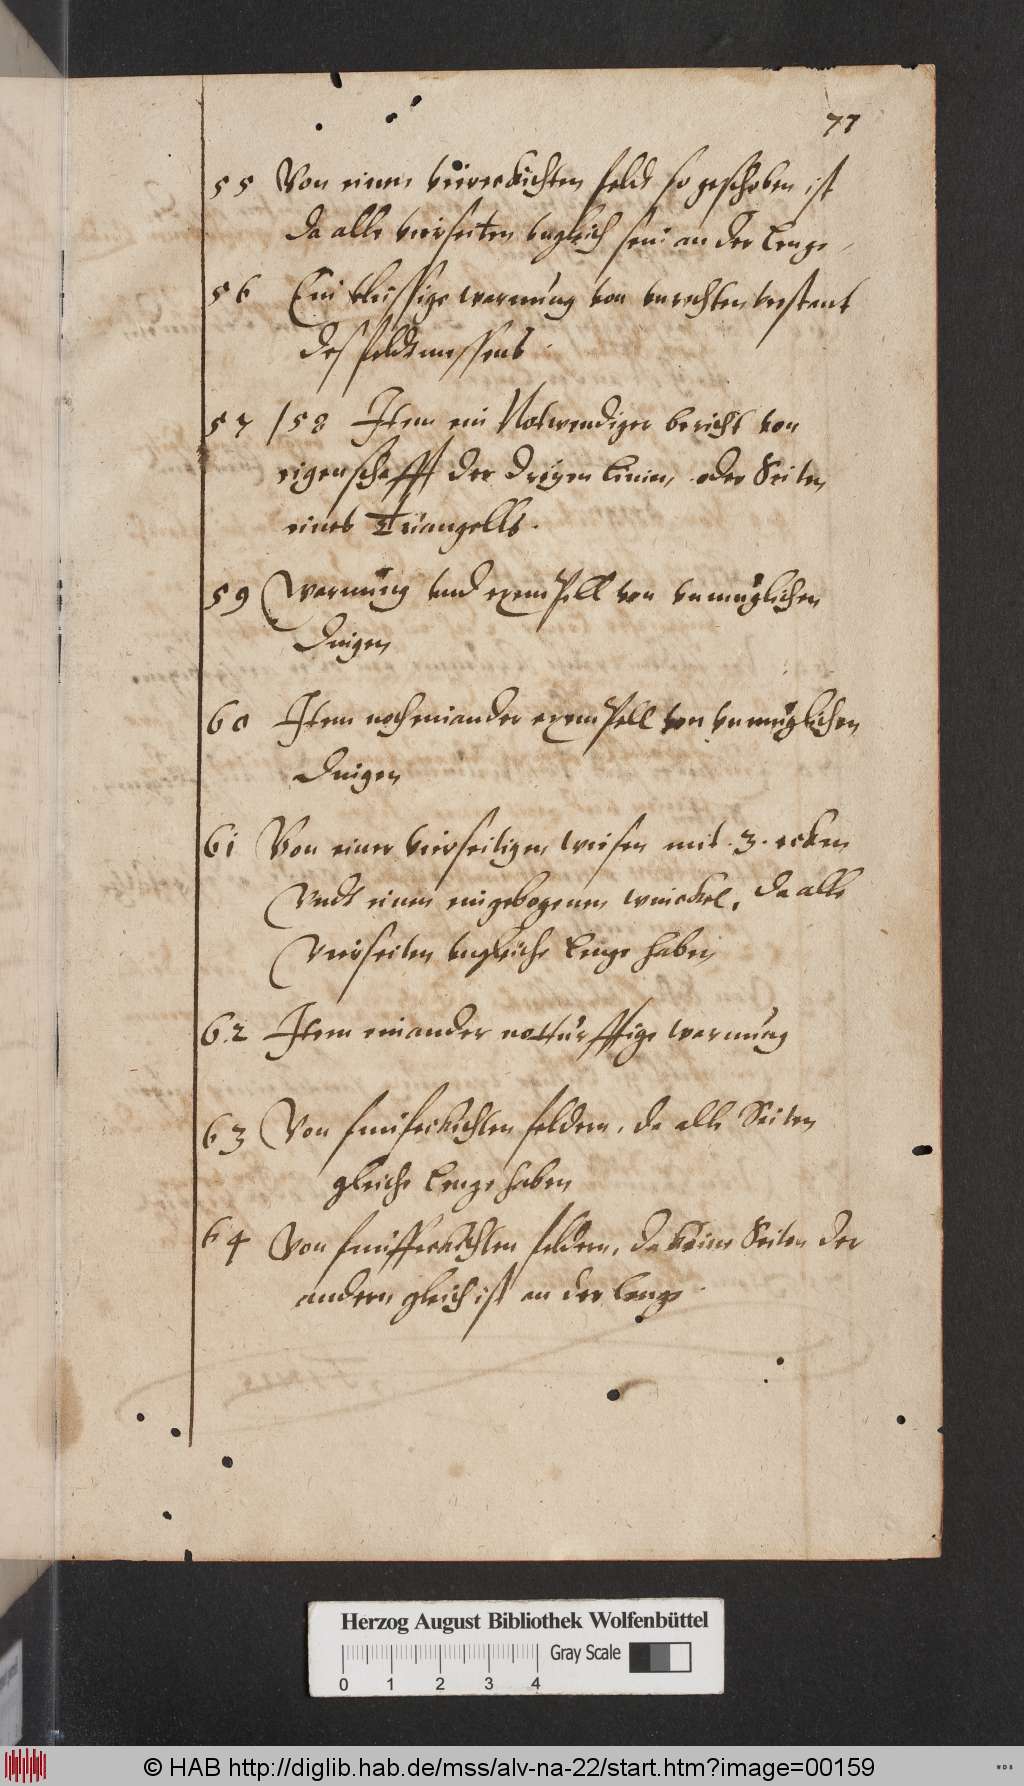 77
55 Von einem viereckichten feldt so geschoben ist
da alle vier seiten vngleich sein an der Lenge
56 Ein fleissige warnung von vnrechten verstant
des feldtmessens
57 / 58 Item ein Notwendiger bericht von
eigenschafft der dreyen Linien, oder Seiten
eines Triangells.
59 Warnung vnd exempell von vnmuglichen
dingen
60 Item noch ein ander exempell von vnmuglichen
dingen
61 Von einer vierseitigen wiesen mit .3. ecken
Vndt einem eingebogenen winckel, da alle
Vierseiten vngleiche Lenge haben
62 Item ein ander notturfftige warnung
63 Von funfeckichten feldern, da alle Seiten
gleiche Lenge haben
64 Von funffeckichten feldern, da keine Seiten der
andern gleich ist an der Lenge
Herzog August Bibliothek Wolfenbüttel
0 1 2 3 4 Gray Scale
© HAB http://diglib.hab.de/mss/alv-na-22/start.htm?image=00159